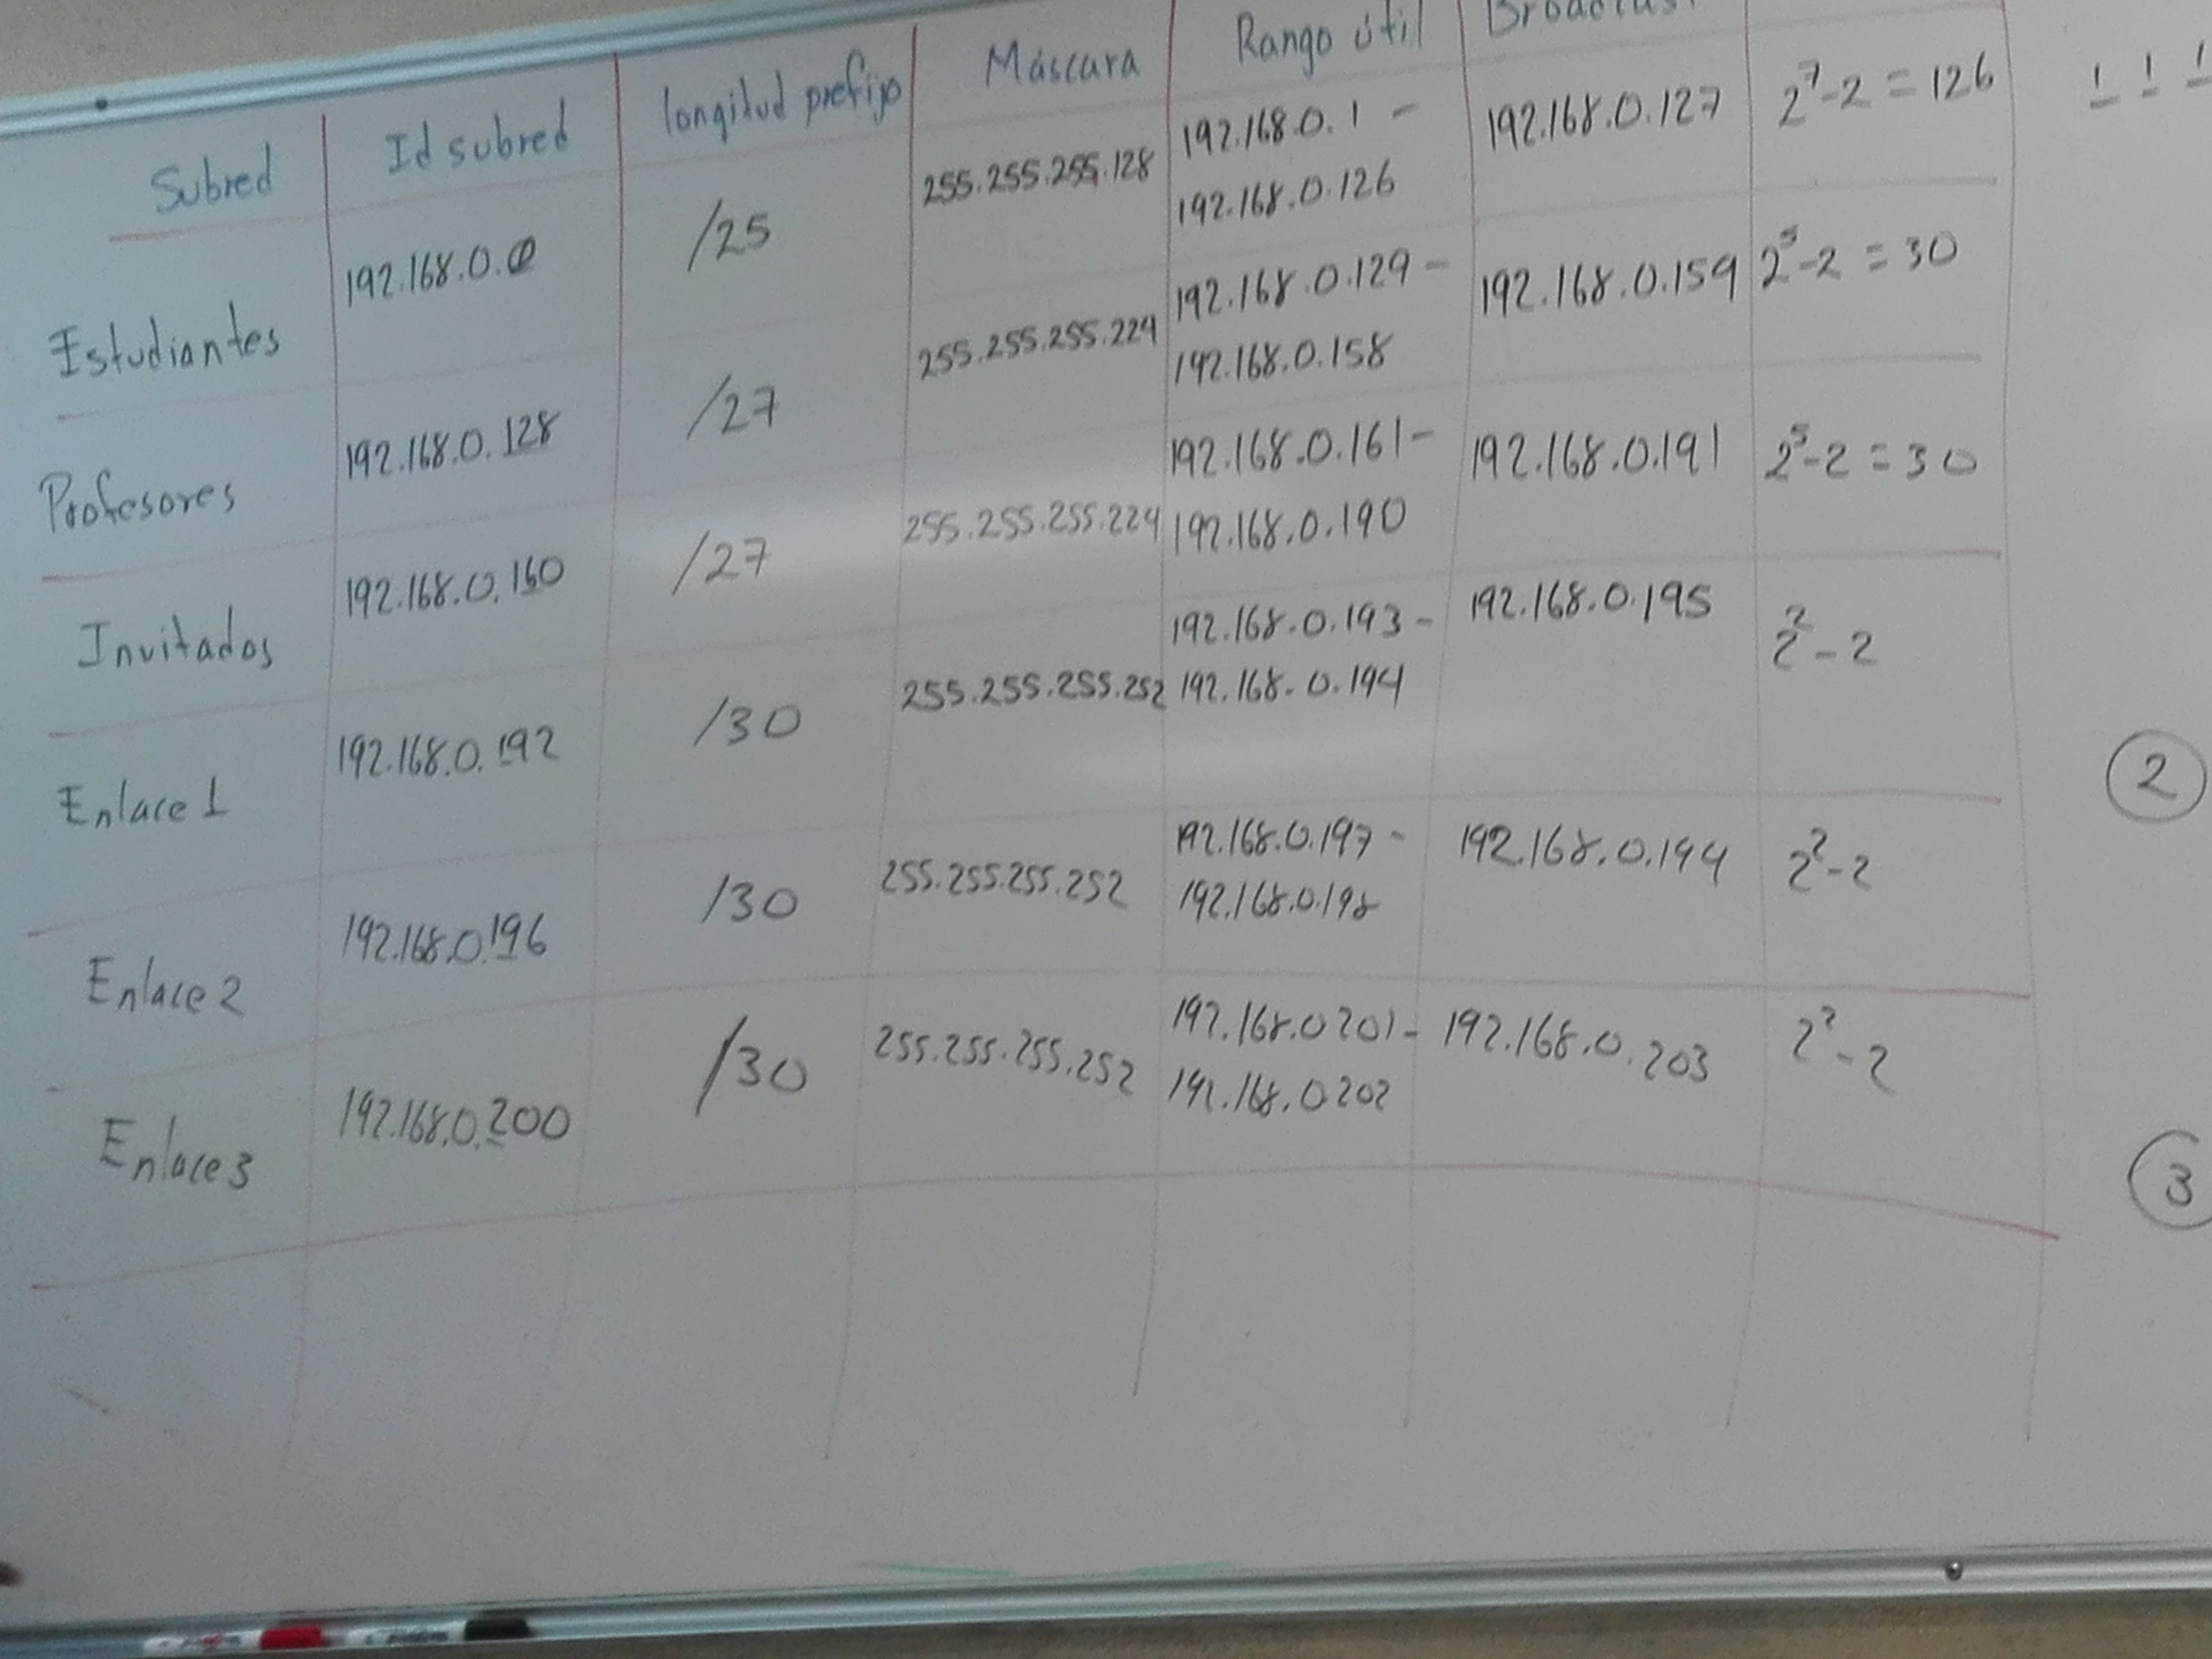 Subred Id subred longitud prefijo Máscara Rango útil Broadcast
Estudiantes 192.168.0.0 /25 255.255.255.128 192.168.0.1 - 192.168.0.127 2^7-2 = 126
192.168.0.126
Profesores 192.168.0.128 /27 255.255.255.224 192.168.0.129 - 192.168.0.159 2^5-2 = 30
192.168.0.158
Invitados 192.168.0.160 /27 255.255.255.224 192.168.0.161 - 192.168.0.191 2^5-2 = 30
192.168.0.190
Enlace 1 192.168.0.192 /30 255.255.255.252 192.168.0.193 - 192.168.0.195 2^2-2
192.168.0.194
Enlace 2 192.168.0.196 /30 255.255.255.252 192.168.0.197 - 192.168.0.199 2^2-2
192.168.0.198
Enlace 3 192.168.0.200 /30 255.255.255.252 192.168.0 201 - 192.168.0.203 2^2-2
192.168.0 202
1 1 1
2
3